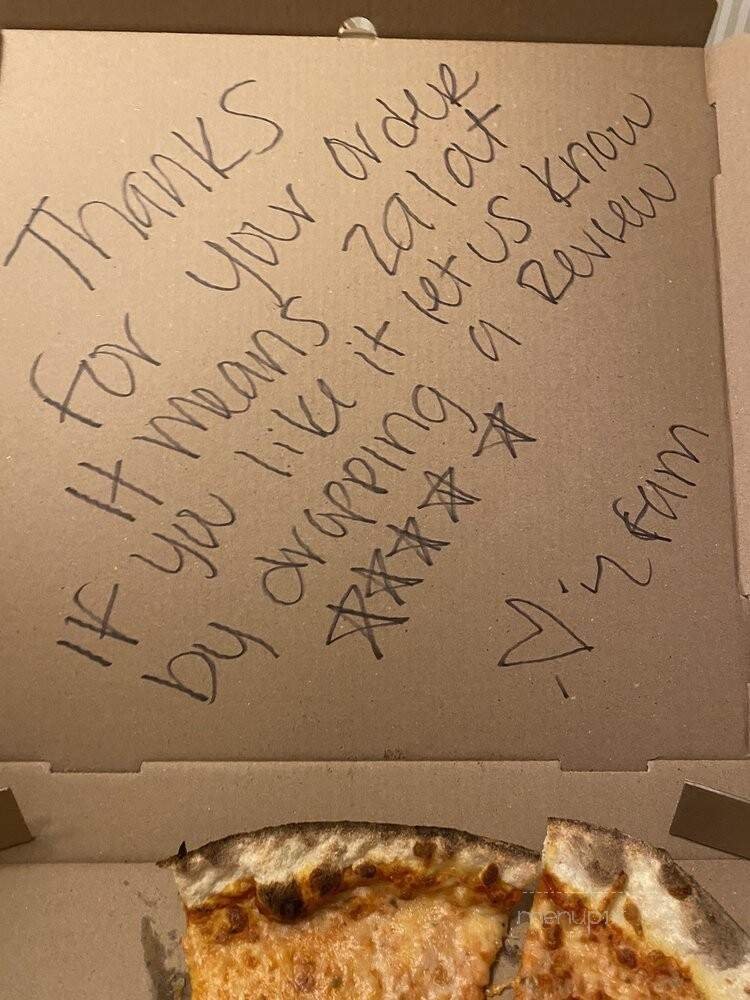 Thanks
for your order
It means zalat
If you like it let us know
by dropping a Review
☆☆☆☆☆
-♡'z fam
menupix